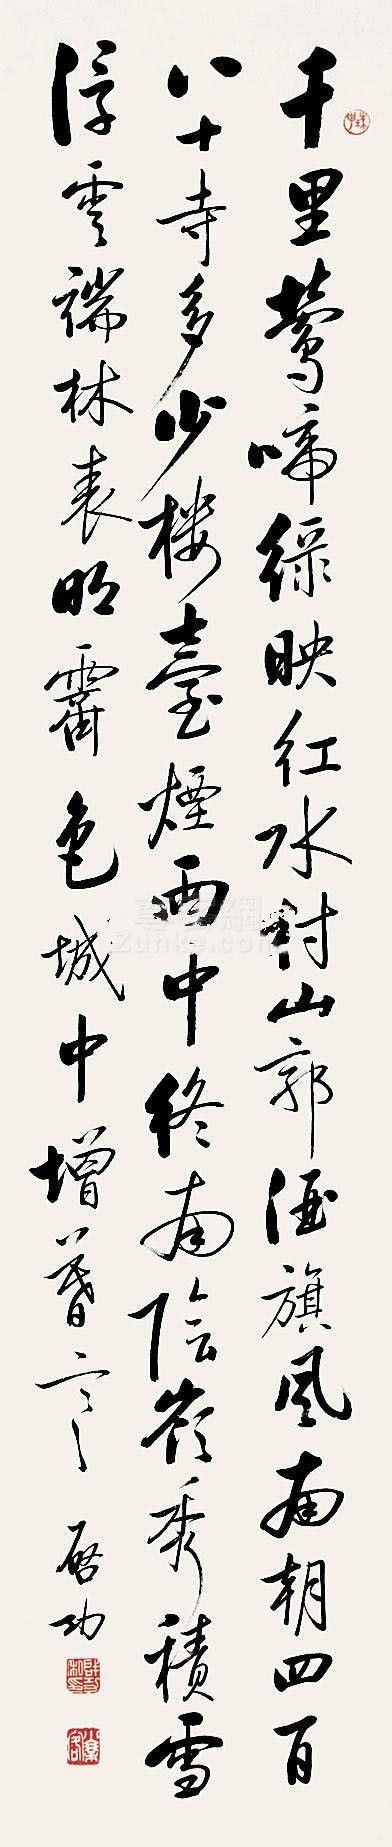 千里鶯啼綠映紅水村山郭酒旗風南朝四百
八十寺多少樓臺煙雨中終南陰嶺秀積雪
浮雲端林表明霽色城中增暮寒
啟功
尊客網
Zunke.com